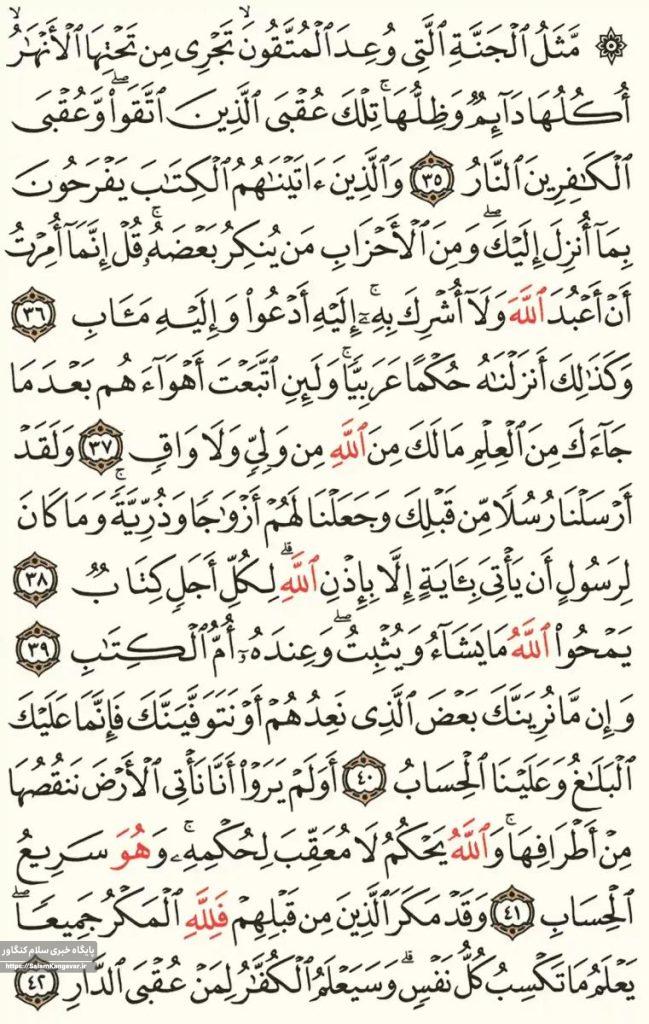 ۞ مَّثَلُ ٱلْجَنَّةِ ٱلَّتِى وُعِدَ ٱلْمُتَّقُونَۙ تَجْرِى مِن تَحْتِهَا ٱلْأَنْهَـٰرُۙ
أُكُلُهَا دَآئِمٌ وَظِلُّهَاۚ تِلْكَ عُقْبَى ٱلَّذِينَ ٱتَّقَواْۖ وَّعُقْبَى
ٱلْكَـٰفِرِينَ ٱلنَّارُ ٣٥ وَٱلَّذِينَ ءَاتَيْنَـٰهُمُ ٱلْكِتَـٰبَ يَفْرَحُونَ
بِمَآ أُنزِلَ إِلَيْكَۖ وَمِنَ ٱلْأَحْزَابِ مَن يُنكِرُ بَعْضَهُۥۚ قُلْ إِنَّمَآ أُمِرْتُ
أَنْ أَعْبُدَ ٱللَّهَ وَلَآ أُشْرِكَ بِهِۦٓۚ إِلَيْهِ أَدْعُواْ وَإِلَيْهِ مَـَٔابِ ٣٦
وَكَذَٰلِكَ أَنزَلْنَـٰهُ حُكْمًا عَرَبِيًّاۚ وَلَئِنِ ٱتَّبَعْتَ أَهْوَآءَهُم بَعْدَ مَا
جَآءَكَ مِنَ ٱلْعِلْمِ مَا لَكَ مِنَ ٱللَّهِ مِن وَلِىٍّ وَلَا وَاقٍ ٣٧ وَلَقَدْ
أَرْسَلْنَا رُسُلًا مِّن قَبْلِكَ وَجَعَلْنَا لَهُمْ أَزْوَٰجًا وَذُرِّيَّةًۚ وَمَا كَانَ
لِرَسُولٍ أَن يَأْتِىَ بِـَٔايَةٍ إِلَّا بِإِذْنِ ٱللَّهِۗ لِكُلِّ أَجَلٍ كِتَابٌ ٣٨
يَمْحُواْ ٱللَّهُ مَا يَشَآءُ وَيُثْبِتُۖ وَعِندَهُۥٓ أُمُّ ٱلْكِتَـٰبِ ٣٩
وَإِن مَّا نُرِيَنَّكَ بَعْضَ ٱلَّذِى نَعِدُهُمْ أَوْ نَتَوَفَّيَنَّكَ فَإِنَّمَا عَلَيْكَ
ٱلْبَلَـٰغُ وَعَلَيْنَا ٱلْحِسَابُ ٤٠ أَوَلَمْ يَرَوْاْ أَنَّا نَأْتِى ٱلْأَرْضَ نَنقُصُهَا
مِنْ أَطْرَافِهَاۚ وَٱللَّهُ يَحْكُمُ لَا مُعَقِّبَ لِحُكْمِهِۦۚ وَهُوَ سَرِيعُ
ٱلْحِسَابِ ٤١ وَقَدْ مَكَرَ ٱلَّذِينَ مِن قَبْلِهِمْ فَلِلَّهِ ٱلْمَكْرُ جَمِيعًاۖ
يَعْلَمُ مَا تَكْسِبُ كُلُّ نَفْسٍۗ وَسَيَعْلَمُ ٱلْكُفَّـٰرُ لِمَنْ عُقْبَى ٱلدَّارِ ٤٢
پایگاه خبری سلام کنگاور
https://SalamKangavar.ir